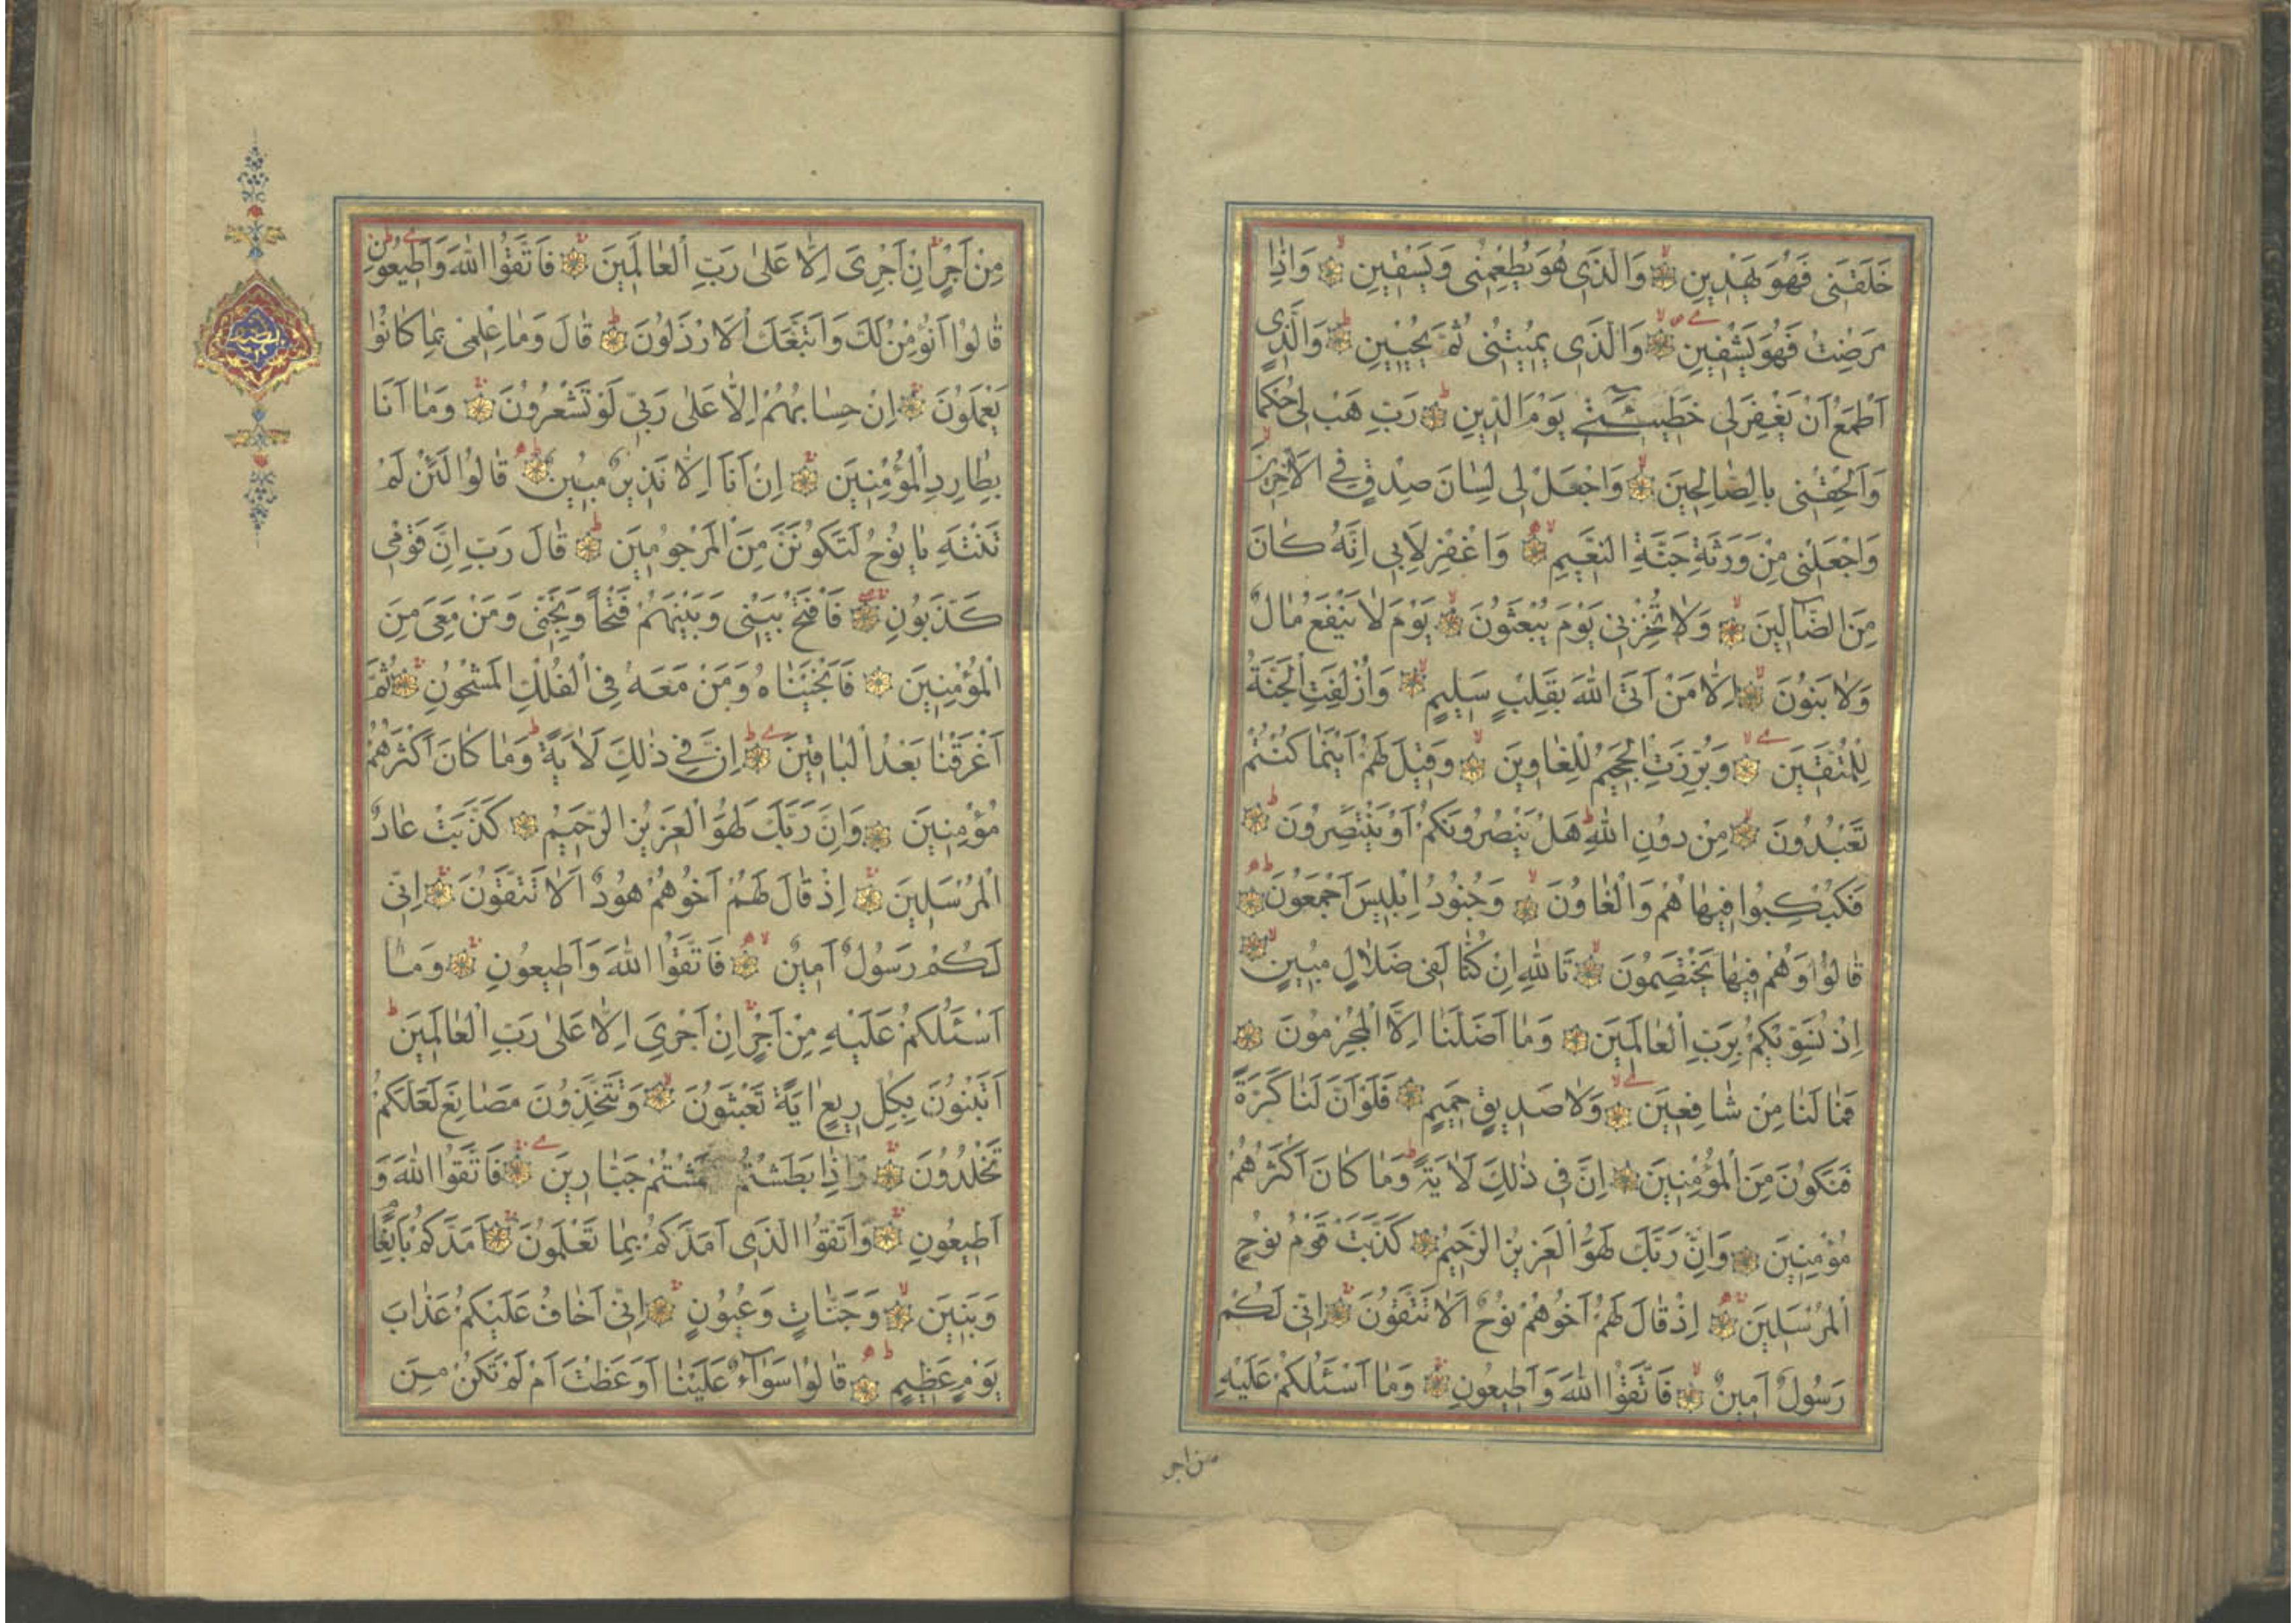 خَلَقَنِى فَهُوَ يَهْدِينِ وَالَّذِى هُوَ يُطْعِمُنِى وَيَسْقِينِ وَاِذَا
مَرِضْتُ فَهُوَ يَشْفِينِ وَالَّذِى يُمِيتُنِى ثُمَّ يُحْيِينِ وَالَّذِى
اَطْمَعُ اَنْ يَغْفِرَ لِى خَطِيئَتِى يَوْمَ الدِّينِ رَبِّ هَبْ لِى حُكْمًا
وَاَلْحِقْنِى بِالصَّالِحِينَ وَاجْعَلْ لِى لِسَانَ صِدْقٍ فِى الْاٰخِرِينَ
وَاجْعَلْنِى مِنْ وَرَثَةِ جَنَّةِ النَّعِيمِ وَاغْفِرْ لِاَبِى اِنَّهُ كَانَ
مِنَ الضَّآلِّينَ وَلَا تُخْزِنِى يَوْمَ يُبْعَثُونَ يَوْمَ لَا يَنْفَعُ مَالٌ
وَلَا بَنُونَ اِلَّا مَنْ اَتَى اللّٰهَ بِقَلْبٍ سَلِيمٍ وَاُزْلِفَتِ الْجَنَّةُ
لِلْمُتَّقِينَ وَبُرِّزَتِ الْجَحِيمُ لِلْغَاوِينَ وَقِيلَ لَهُمْ اَيْنَمَا كُنْتُمْ
تَعْبُدُونَ مِنْ دُونِ اللّٰهِ هَلْ يَنْصُرُونَكُمْ اَوْ يَنْتَصِرُونَ
فَكُبْكِبُوا فِيهَا هُمْ وَالْغَاوُنَ وَجُنُودُ اِبْلِيسَ اَجْمَعُونَ
قَالُوا وَهُمْ فِيهَا يَخْتَصِمُونَ تَاللّٰهِ اِنْ كُنَّا لَفِى ضَلَالٍ مُبِينٍ
اِذْ نُسَوِّيكُمْ بِرَبِّ الْعَالَمِينَ وَمَا اَضَلَّنَا اِلَّا الْمُجْرِمُونَ
فَمَا لَنَا مِنْ شَافِعِينَ وَلَا صَدِيقٍ حَمِيمٍ فَلَوْ اَنَّ لَنَا كَرَّةً
فَنَكُونَ مِنَ الْمُؤْمِنِينَ اِنَّ فِى ذٰلِكَ لَاٰيَةً وَمَا كَانَ اَكْثَرُهُمْ
مُؤْمِنِينَ وَاِنَّ رَبَّكَ لَهُوَ الْعَزِيزُ الرَّحِيمُ كَذَّبَتْ قَوْمُ نُوحٍ
الْمُرْسَلِينَ اِذْ قَالَ لَهُمْ اَخُوهُمْ نُوحٌ اَلَا تَتَّقُونَ اِنِّى لَكُمْ
رَسُولٌ اَمِينٌ فَاتَّقُوا اللّٰهَ وَاَطِيعُونِ وَمَا اَسْئَلُكُمْ عَلَيْهِ
من اجر
مِنْ اَجْرٍ اِنْ اَجْرِىَ اِلَّا عَلٰى رَبِّ الْعَالَمِينَ فَاتَّقُوا اللّٰهَ وَاَطِيعُونِ
قَالُوا اَنُؤْمِنُ لَكَ وَاتَّبَعَكَ الْاَرْذَلُونَ قَالَ وَمَا عِلْمِى بِمَا كَانُوا
يَعْمَلُونَ اِنْ حِسَابُهُمْ اِلَّا عَلٰى رَبِّى لَوْ تَشْعُرُونَ وَمَا اَنَا
بِطَارِدِ الْمُؤْمِنِينَ اِنْ اَنَا اِلَّا نَذِيرٌ مُبِينٌ قَالُوا لَئِنْ لَمْ
تَنْتَهِ يَا نُوحُ لَتَكُونَنَّ مِنَ الْمَرْجُومِينَ قَالَ رَبِّ اِنَّ قَوْمِى
كَذَّبُونِ فَافْتَحْ بَيْنِى وَبَيْنَهُمْ فَتْحًا وَنَجِّنِى وَمَنْ مَعِىَ مِنَ
الْمُؤْمِنِينَ فَاَنْجَيْنَاهُ وَمَنْ مَعَهُ فِى الْفُلْكِ الْمَشْحُونِ ثُمَّ
اَغْرَقْنَا بَعْدُ الْبَاقِينَ اِنَّ فِى ذٰلِكَ لَاٰيَةً وَمَا كَانَ اَكْثَرُهُمْ
مُؤْمِنِينَ وَاِنَّ رَبَّكَ لَهُوَ الْعَزِيزُ الرَّحِيمُ كَذَّبَتْ عَادٌ
الْمُرْسَلِينَ اِذْ قَالَ لَهُمْ اَخُوهُمْ هُودٌ اَلَا تَتَّقُونَ اِنِّى
لَكُمْ رَسُولٌ اَمِينٌ فَاتَّقُوا اللّٰهَ وَاَطِيعُونِ وَمَا
اَسْئَلُكُمْ عَلَيْهِ مِنْ اَجْرٍ اِنْ اَجْرِىَ اِلَّا عَلٰى رَبِّ الْعَالَمِينَ
اَتَبْنُونَ بِكُلِّ رِيعٍ اٰيَةً تَعْبَثُونَ وَتَتَّخِذُونَ مَصَانِعَ لَعَلَّكُمْ
تَخْلُدُونَ وَاِذَا بَطَشْتُمْ بَطَشْتُمْ جَبَّارِينَ فَاتَّقُوا اللّٰهَ وَ
اَطِيعُونِ وَاتَّقُوا الَّذِى اَمَدَّكُمْ بِمَا تَعْلَمُونَ اَمَدَّكُمْ بِاَنْعَامٍ
وَبَنِينَ وَجَنَّاتٍ وَعُيُونٍ اِنِّى اَخَافُ عَلَيْكُمْ عَذَابَ
يَوْمٍ عَظِيمٍ قَالُوا سَوَآءٌ عَلَيْنَا اَوَعَظْتَ اَمْ لَمْ تَكُنْ مِنَ